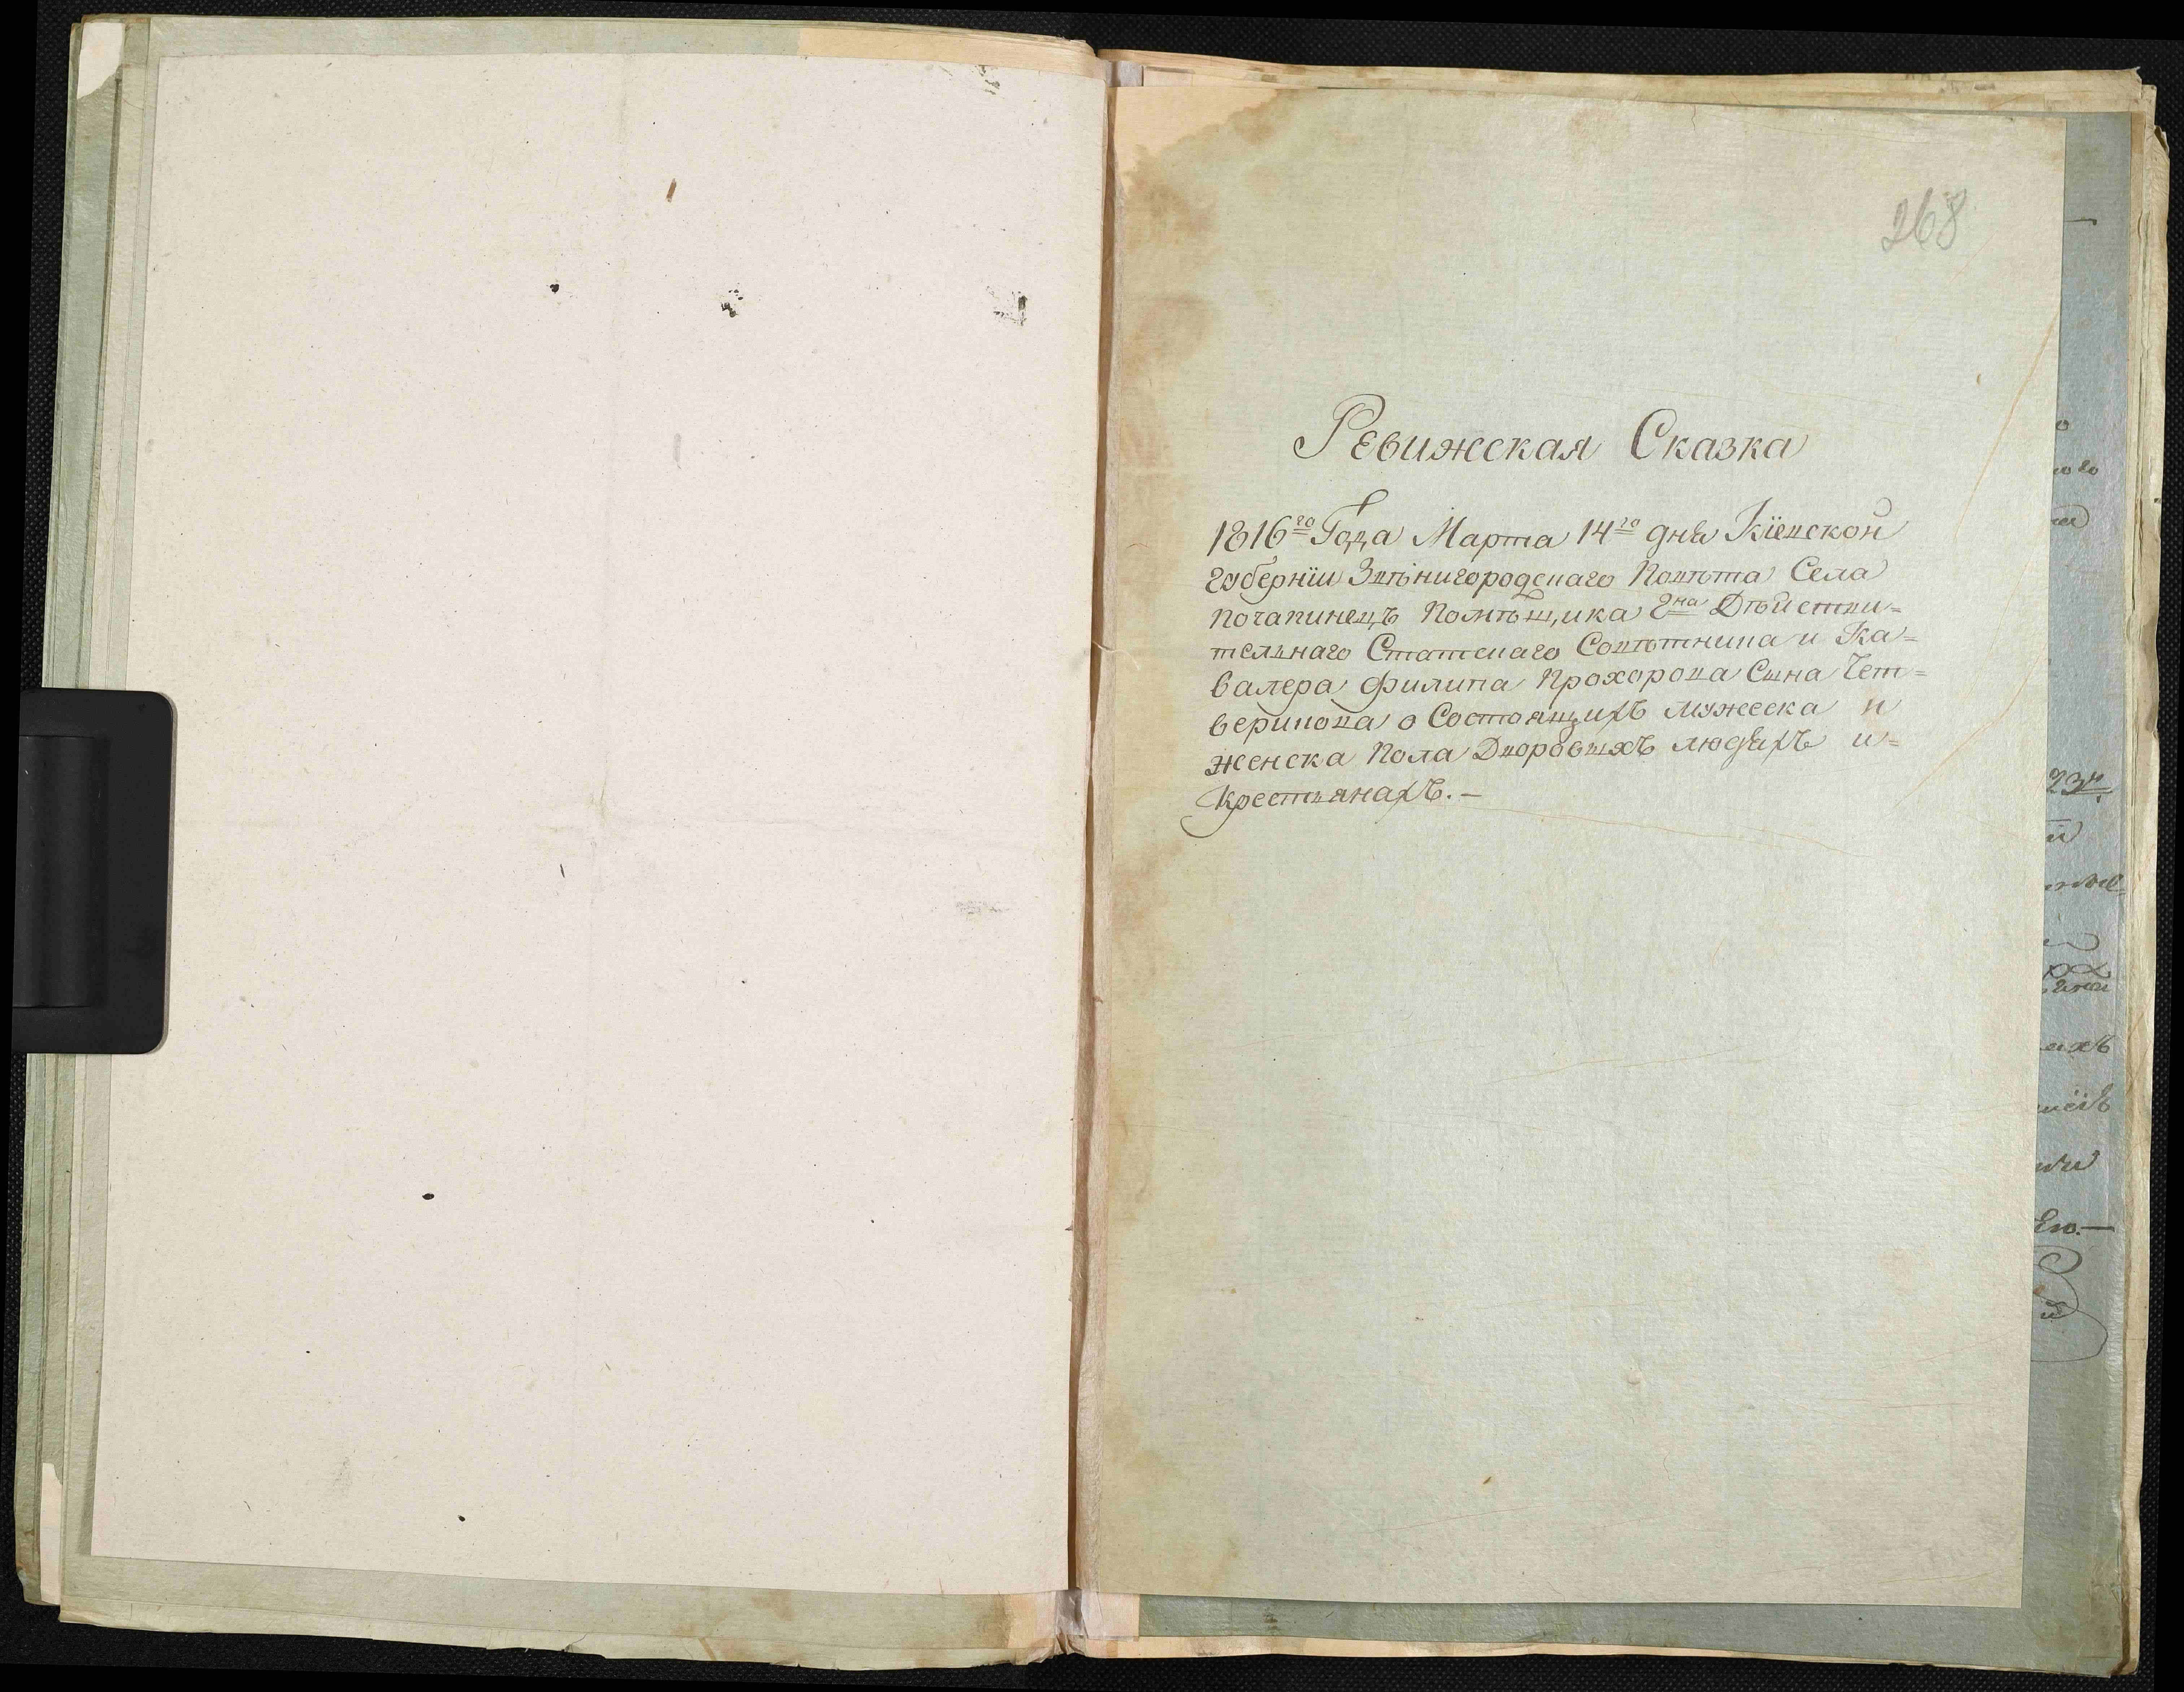 268
Ревижская Сказка
1816го Года Марта 14го дня Кіевской
губерніи Звѣнигородскаго Повѣта Села
Почапинецъ Помѣщика Гна Дѣйстви=
тельнаго Статскаго Совѣтника и Ка=
валера Филипа Прохорова Сына Чет=
верикова о Состоящихъ мужеска и
женска Пола Дворовыхъ людяхъ и=
Крестьянахъ.—